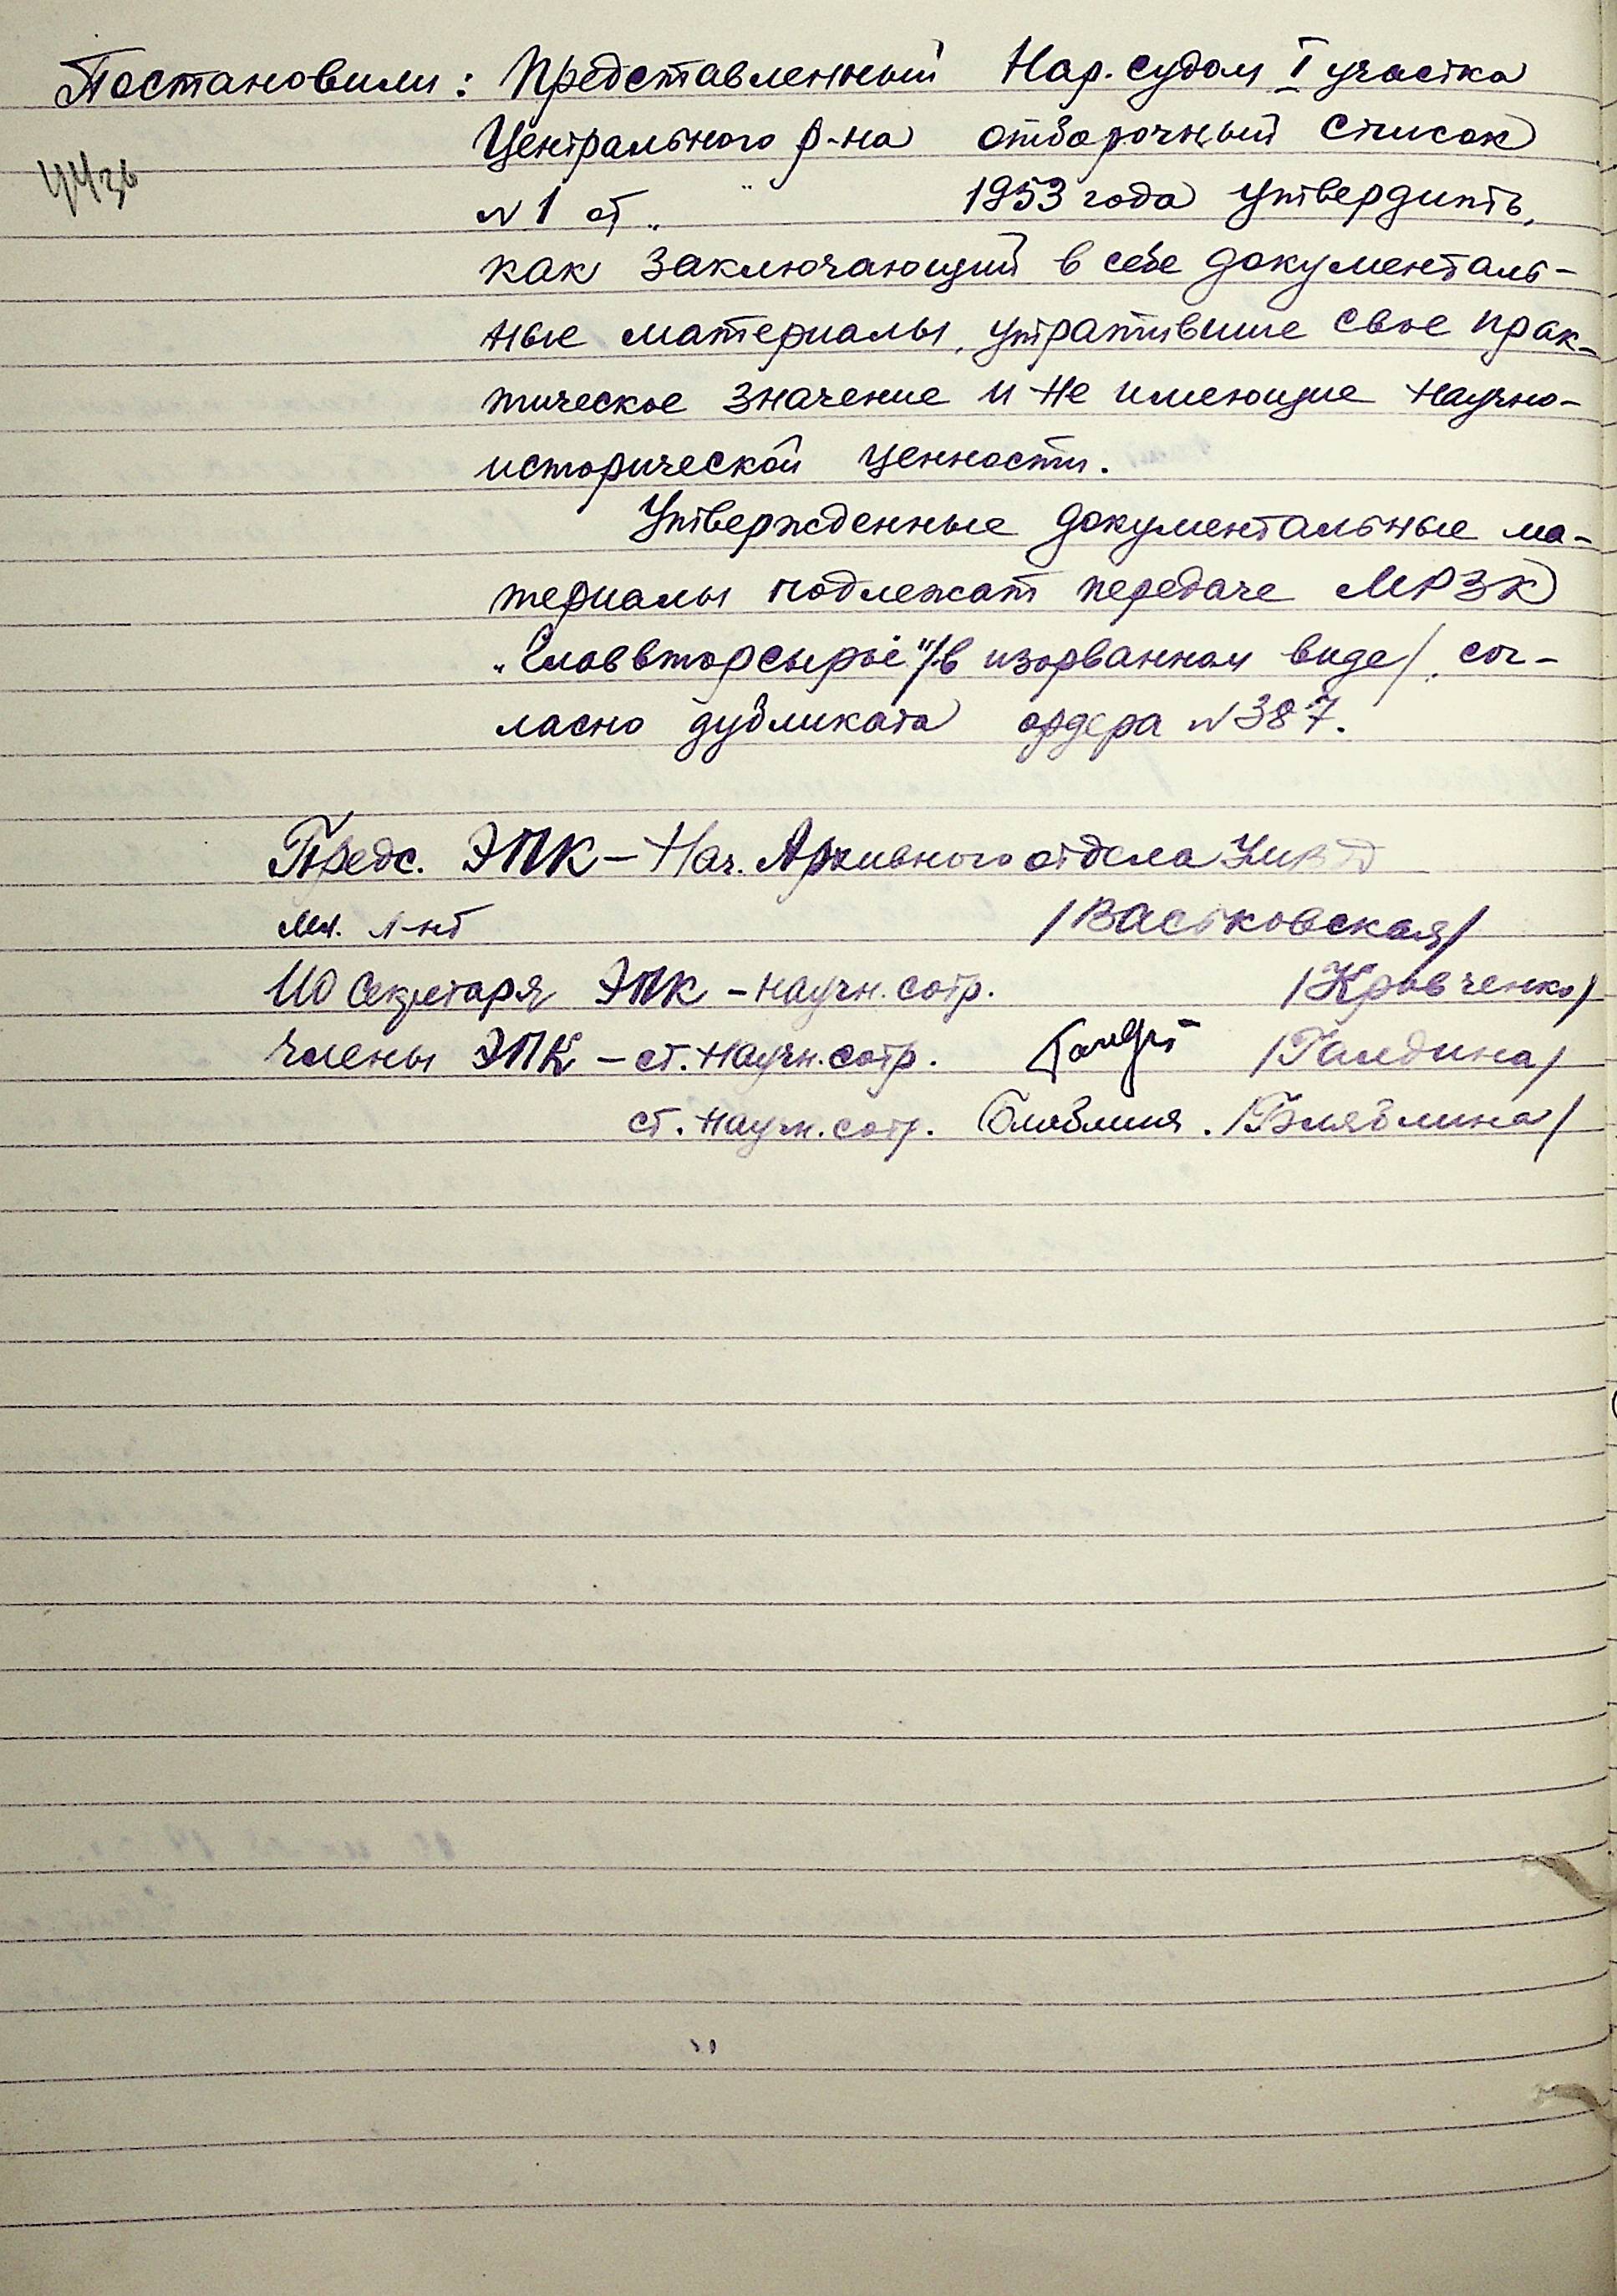 Постановили: Представленный Нар. судом I участка
Центрального р-на отборочный список
N 1 от „ " 1953 года утвердить,
как заключающий в себе документаль-
ные материалы, утратившие свое прак-
тическое значение и не имеющие научно-
исторической ценности.
Утвержденные документальные ма-
териалы подлежат передаче МРЗК
„Главвторсырье" /в изорванном виде/, сог-
ласно дубликата ордера N 387.
Предс. ЭПК – Нач. Архивного отдела
мл. л-нт /Васьковская/
ИО Секретаря ЭПК – научн. сотр. /Кравченко/
Члены ЭПК – ст. научн. сотр. /Галдина/
ст. научн. сотр. Бляблина. /Бляблина/